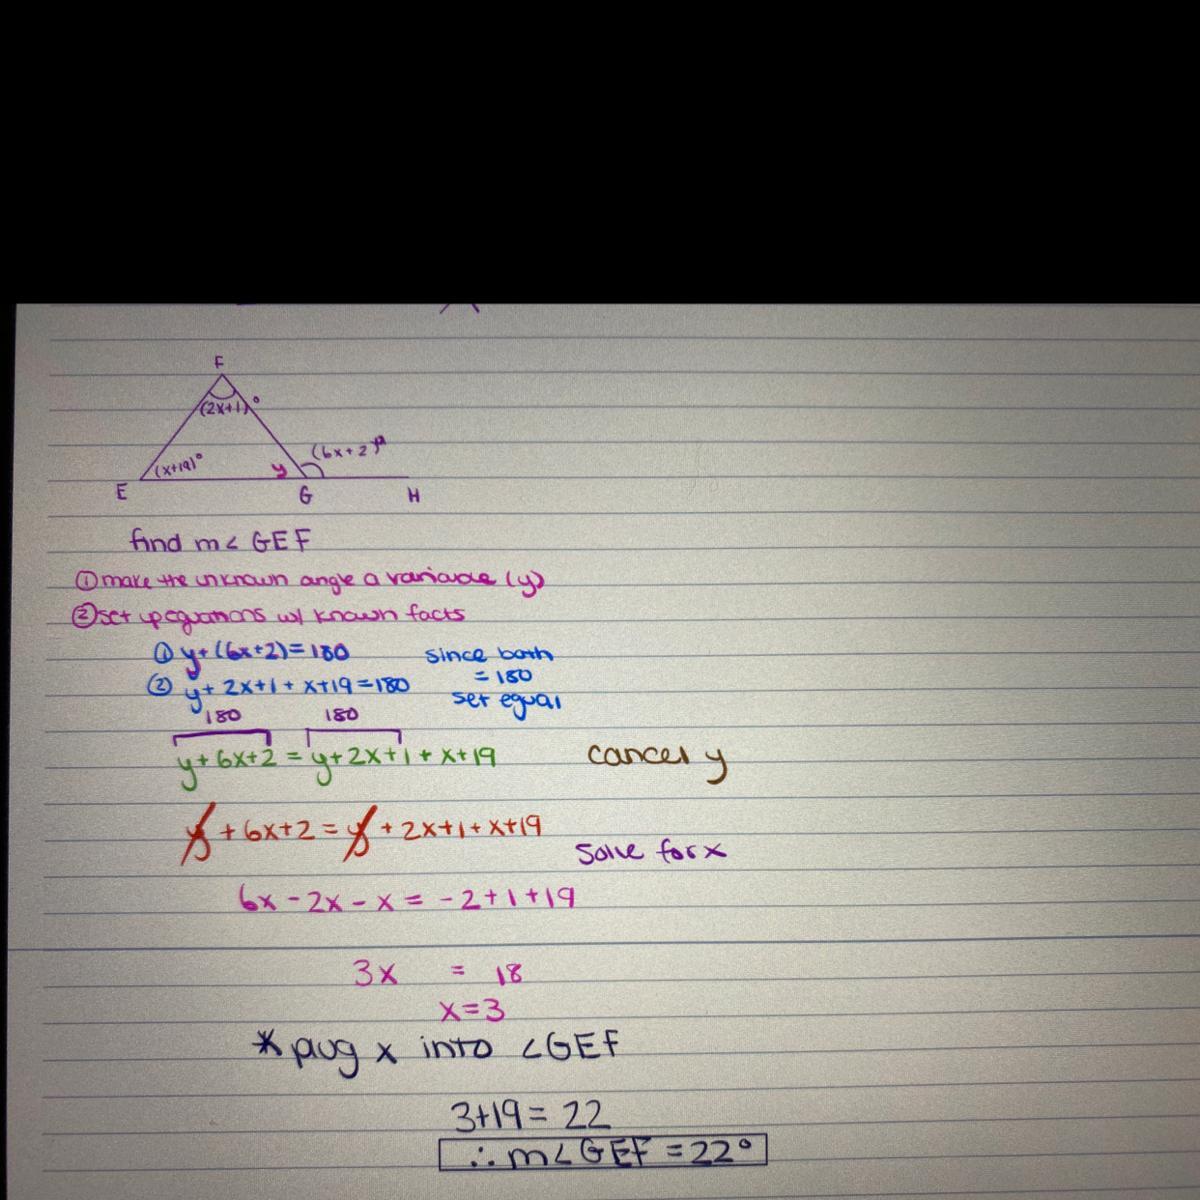 F
(2x+1)°
(6x+2)°
(x+19)°
y
E
G
H
find m∠ GEF
① make the unknown angle a variable (y)
② set up equations w/ known facts
① y+(6x+2)=180
since both
② y+ 2x+1 + x+19=180
= 180
set equal
180
180
y+6x+2 = y+2x+1 + x+19
cancel y
y +6x+2 = y + 2x+1+x+19
solve for x
6x -2x - x = -2+1+19
3x = 18
x=3
* plug x into ∠GEF
3+19= 22
∴ m∠GEF =22°